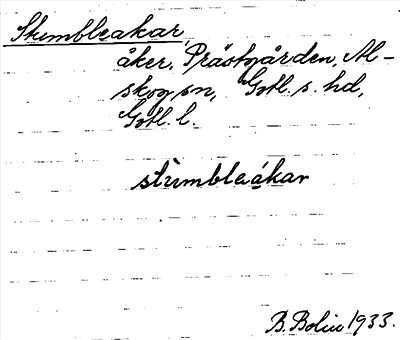 Skumbleakar,
åker, Prästgården, Al-
skog sn, Gotl. s. hd,
Gotl. l.
stùmbleákar
B. Bolin 1933.